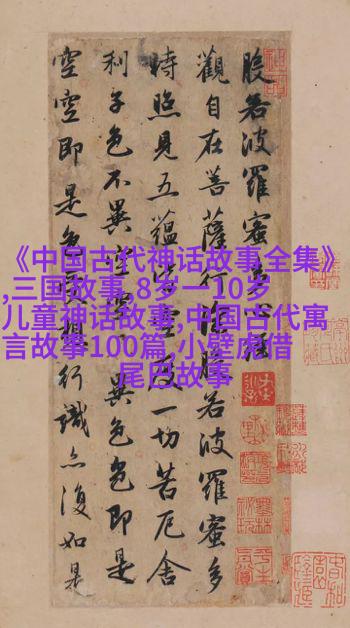 般若波羅蜜多心經
觀自在菩薩行深般若波羅蜜多
時照見五蘊皆空度一切苦厄舍
利子色不異空空不異色色即是
空空即是色受想行識亦復如是
《中国古代神话故事全集》
,三国故事,8岁一10岁
儿童神话故事,中国古代寓
言故事100篇,小壁虎借
尾巴故事